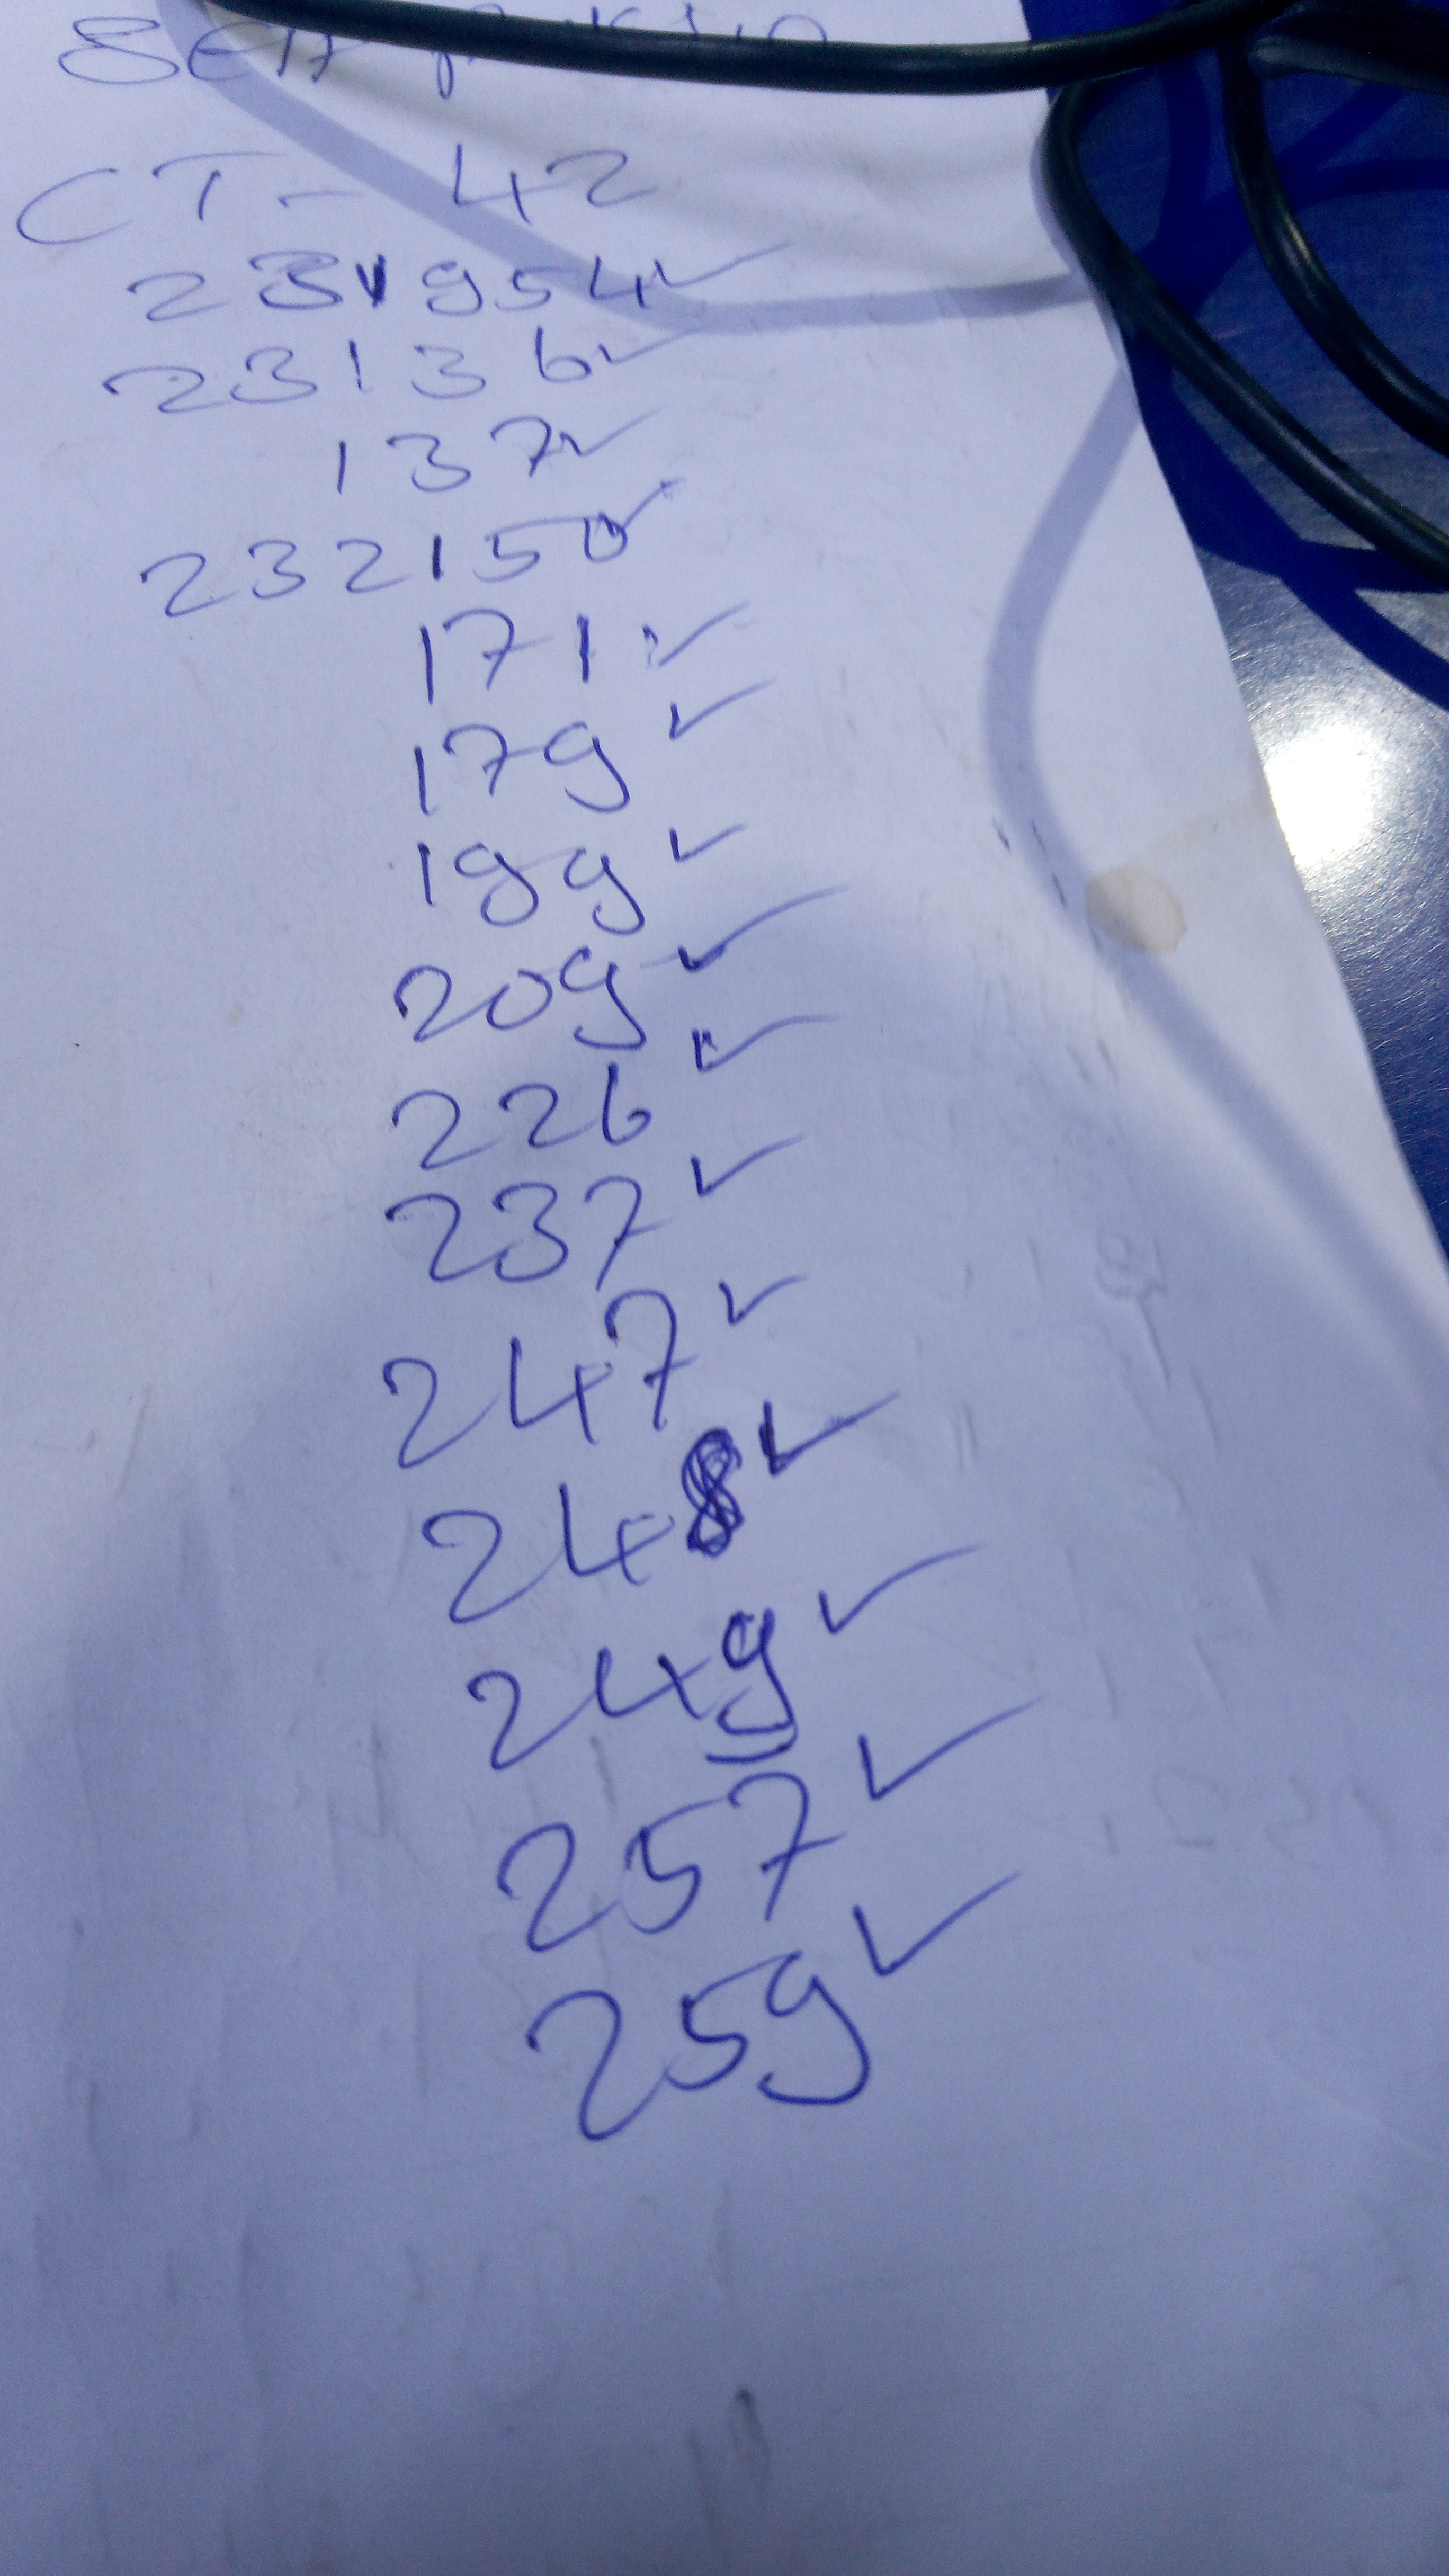 CT - 42
231954 ✓
23136 ✓
137 ✓
232150 ✓
171 ✓
179 ✓
199 ✓
209 ✓
226 ✓
237 ✓
247 ✓
248 ✓
249 ✓
257 ✓
259 ✓